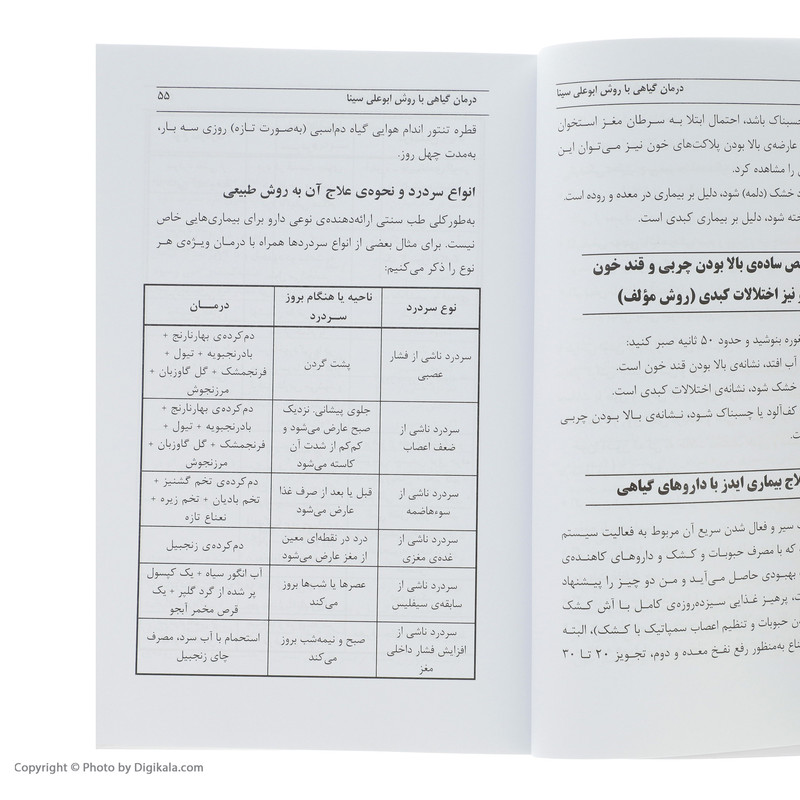 درمان گیاهی با روش ابوعلی سینا
چسبناک باشد، احتمال ابتلا به سرطان مغز استخوان
عارضه‌ی بالا بودن پلاکت‌های خون نیز می‌توان این
را مشاهده کرد.
خشک (دلمه) شود، دلیل بر بیماری در معده و روده است.
شود، دلیل بر بیماری کبدی است.
ساده‌ی بالا بودن چربی و قند خون
و نیز اختلالات کبدی (روش مؤلف)
غوره بنوشید و حدود ۵۰ ثانیه صبر کنید:
آب افتد، نشانه‌ی بالا بودن قند خون است.
خشک شود، نشانه‌ی اختلالات کبدی است.
کف‌آلود یا چسبناک شود، نشانه‌ی بالا بودن چربی
بیماری ایدز با داروهای گیاهی
سیر و فعال شدن سریع آن مربوط به فعالیت سیستم
که با مصرف حبوبات و کشک و داروهای کاهنده‌ی
بهبودی حاصل می‌آید و من دو چیز را پیشنهاد
پرهیز غذایی سیزده‌روزه‌ی کامل با آش کشک
حبوبات و تنظیم اعصاب سمپاتیک با کشک)، البته
به‌منظور رفع نفخ معده و دوم، تجویز ۲۰ تا ۳۰
درمان گیاهی با روش ابوعلی سینا ۵۵
قطره تنتور اندام هوایی گیاه دم‌اسبی (به‌صورت تازه) روزی سه بار،
به‌مدت چهل روز.
انواع سردرد و نحوه‌ی علاج آن به روش طبیعی
به‌طورکلی طب سنتی ارائه‌دهنده‌ی نوعی دارو برای بیماری‌هایی خاص
نیست. برای مثال بعضی از انواع سردردها همراه با درمان ویژه‌ی هر
نوع را ذکر می‌کنیم:
نوع سردرد
ناحیه یا هنگام بروز
سردرد
درمان
سردرد ناشی از فشار
عصبی
پشت گردن
دم‌کرده‌ی بهارنارنج +
بادرنجبویه + تیول +
فرنجمشک + گل گاوزبان +
مرزنجوش
سردرد ناشی از
ضعف اعصاب
جلوی پیشانی. نزدیک
صبح عارض می‌شود و
کم‌کم از شدت آن
کاسته می‌شود
دم‌کرده‌ی بهارنارنج +
بادرنجبویه + تیول +
فرنجمشک + گل گاوزبان +
مرزنجوش
سردرد ناشی از
سوءهاضمه
قبل یا بعد از صرف غذا
عارض می‌شود
دم‌کرده‌ی تخم گشنیز +
تخم بادیان + تخم زیره +
نعناع تازه
سردرد ناشی از
غده‌ی مغزی
درد در نقطه‌ای معین
از مغز عارض می‌شود
دم‌کرده‌ی زنجبیل
سردرد ناشی از
سابقه‌ی سیفلیس
عصرها یا شب‌ها بروز
می‌کند
آب انگور سیاه + یک کپسول
پر شده از گرد گلپر + یک
قرص مخمر آبجو
سردرد ناشی از
افزایش فشار داخلی
مغز
صبح و نیمه‌شب بروز
می‌کند
استحمام با آب سرد، مصرف
چای زنجبیل
Copyright © Photo by Digikala.com